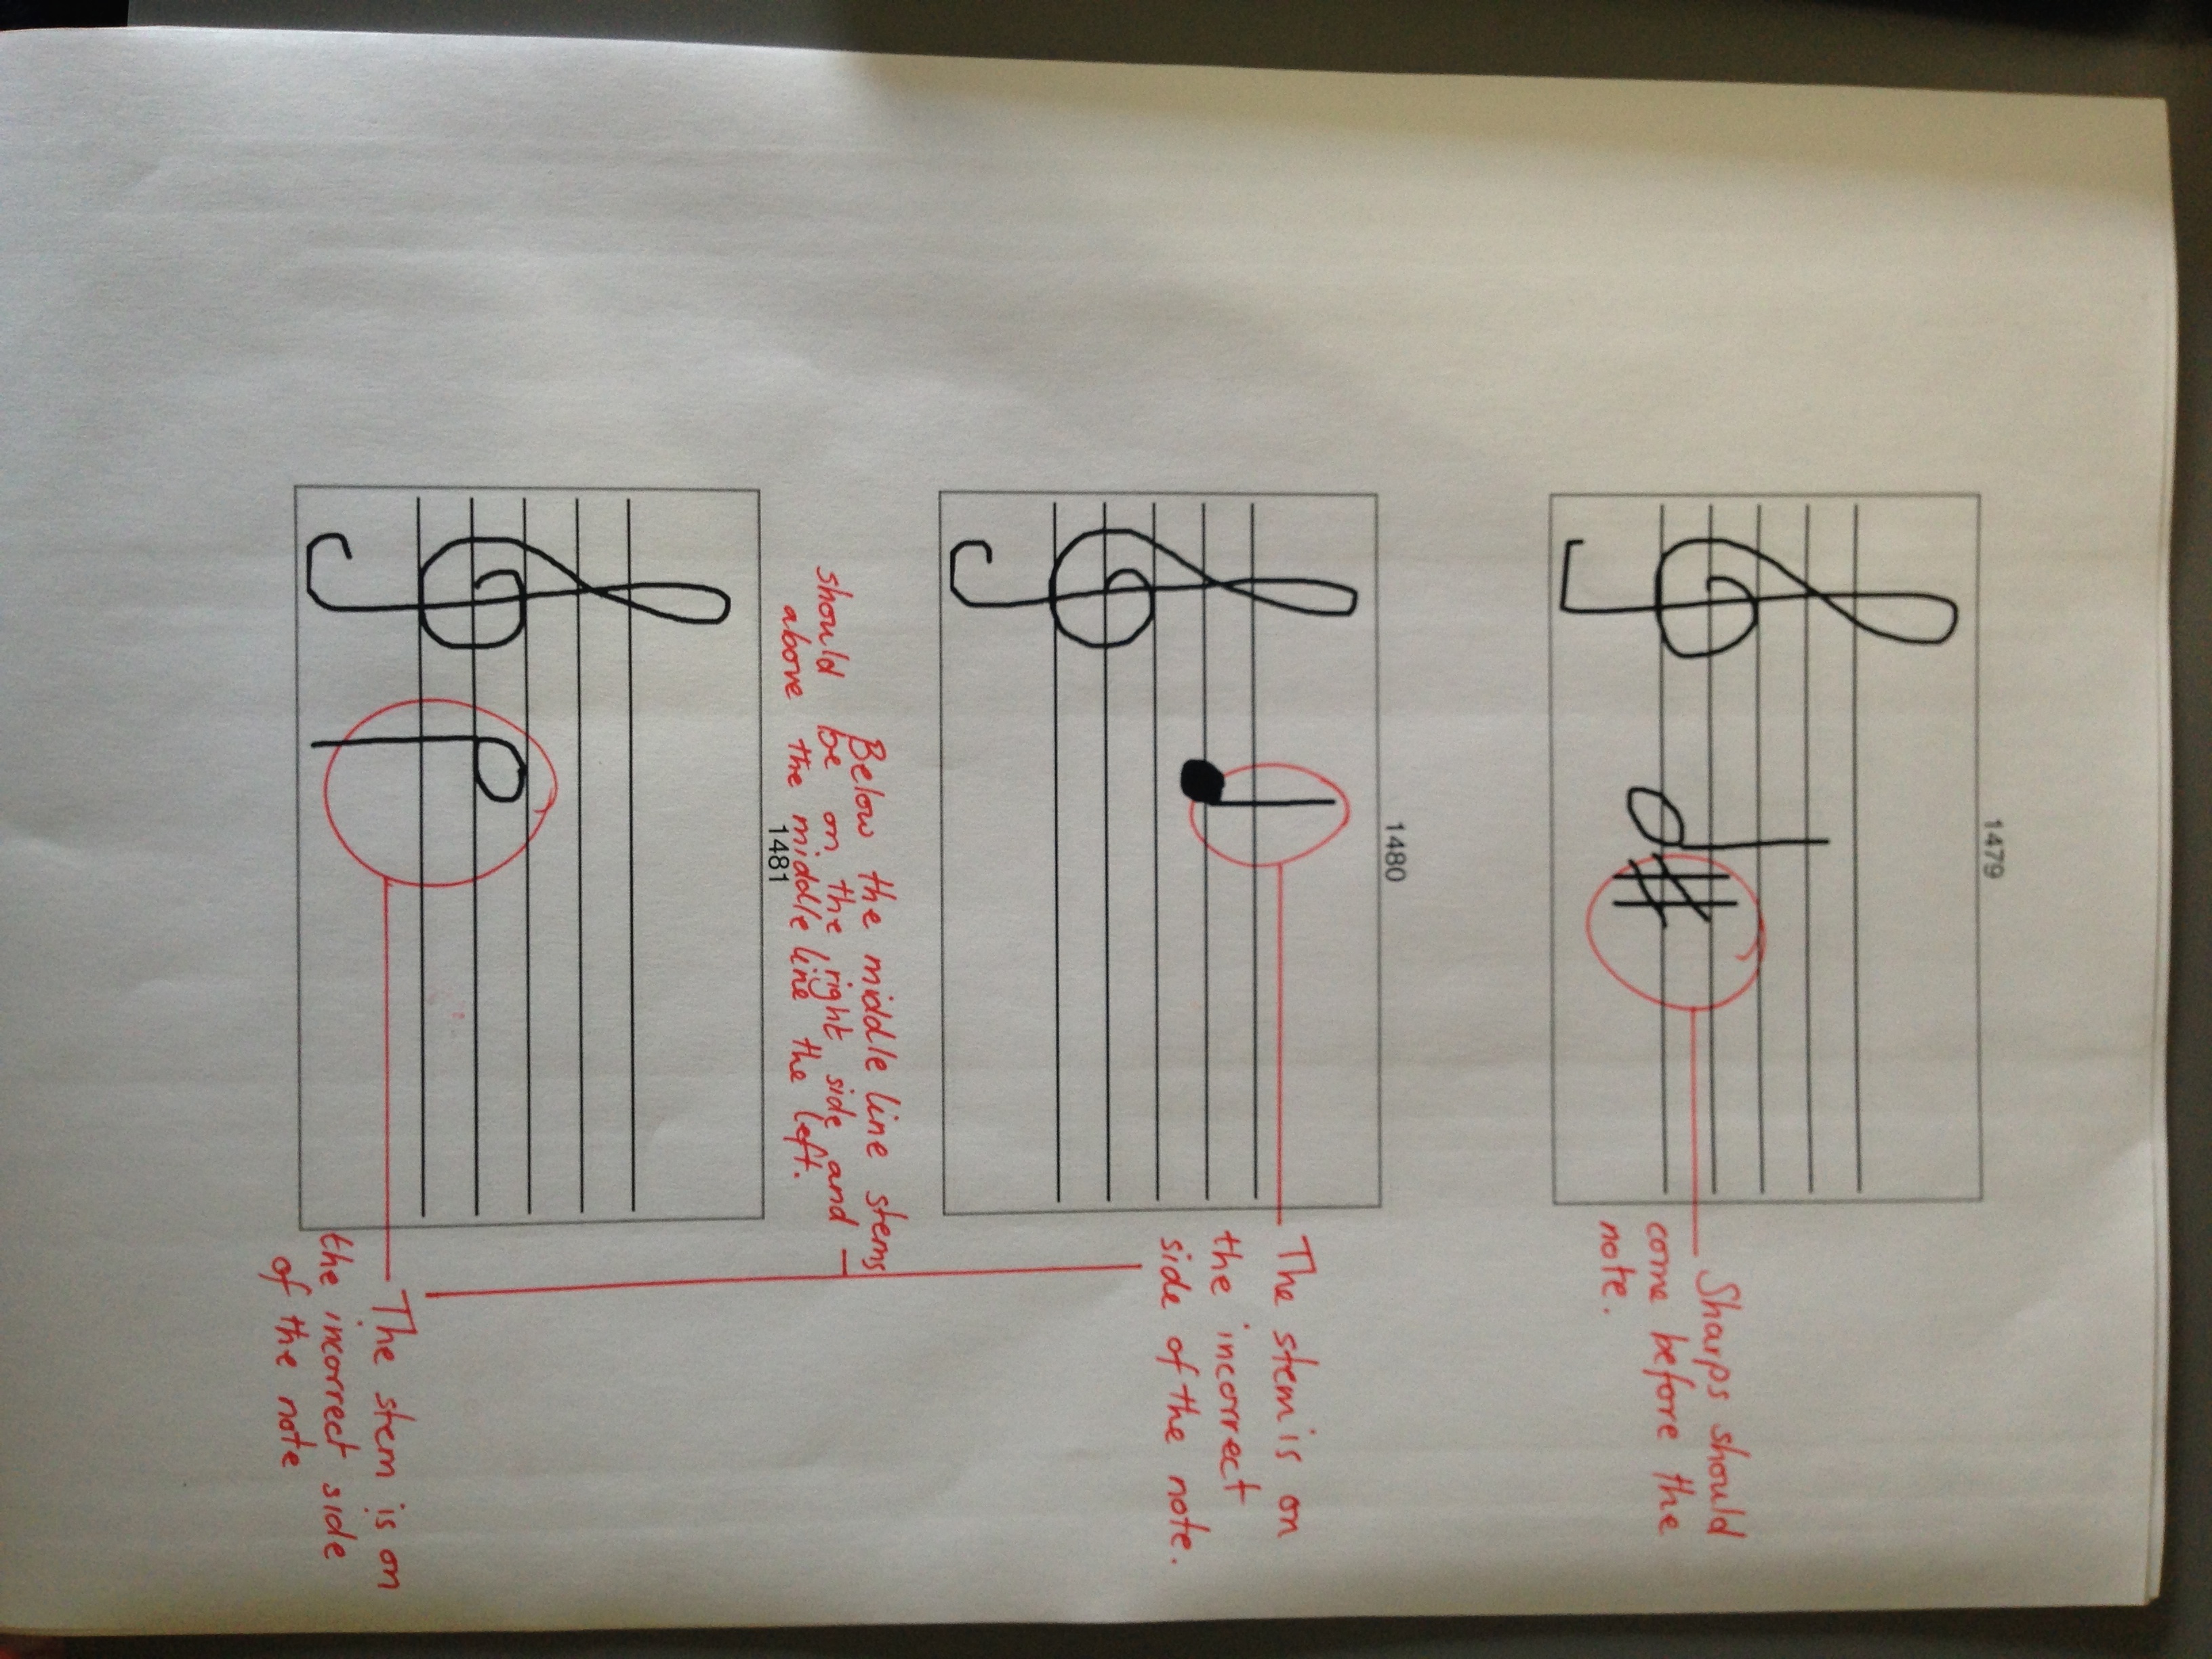 1479
Sharps should
come before the
note.
1480
The stem is on
the incorrect
side of the note.
Below the middle line stems
should be on the right side and
above the middle line the left.
1481
The stem is on
the incorrect side
of the note